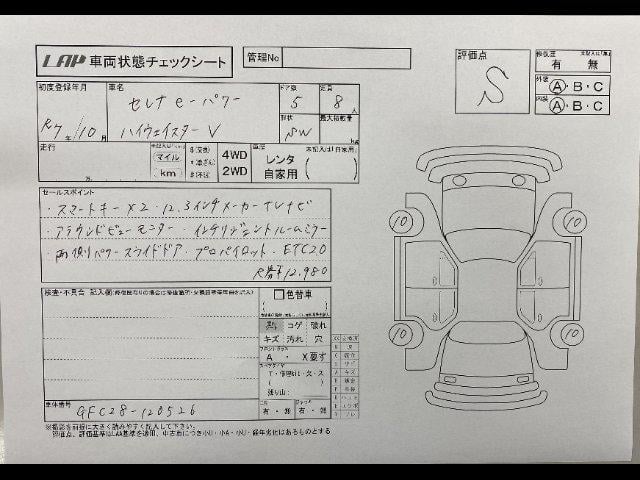 LAP 車両状態チェックシート
管理No
初度登録年月
R7年/10月
車名
セレナ e-パワー
ハイウェイスター V
ドア数
5
定員
8人
形状
SW
最大積載量
kg
走行
マイル
km
4WD
2WD
レンタ
自家用
セールスポイント
・スマートキー×2・12.3インチメーカーナビ
・アラウンドビューモニター・インテリジェントルームミラー
・両側パワースライドドア・プロパイロット・ETC2.0
12,980
検査・不具合 記入欄
色替車
コゲ 破れ
キズ 汚れ 穴
フロントガラス
A ・ X要す
残り山
有・無 有・無
車体番号
GFC28-120526
※撮影を前提に大きく読みやすく記入して下さい。
評価点
S
修復歴
有 無
外装
A・B・C
内装
A・B・C
10
10
10
10